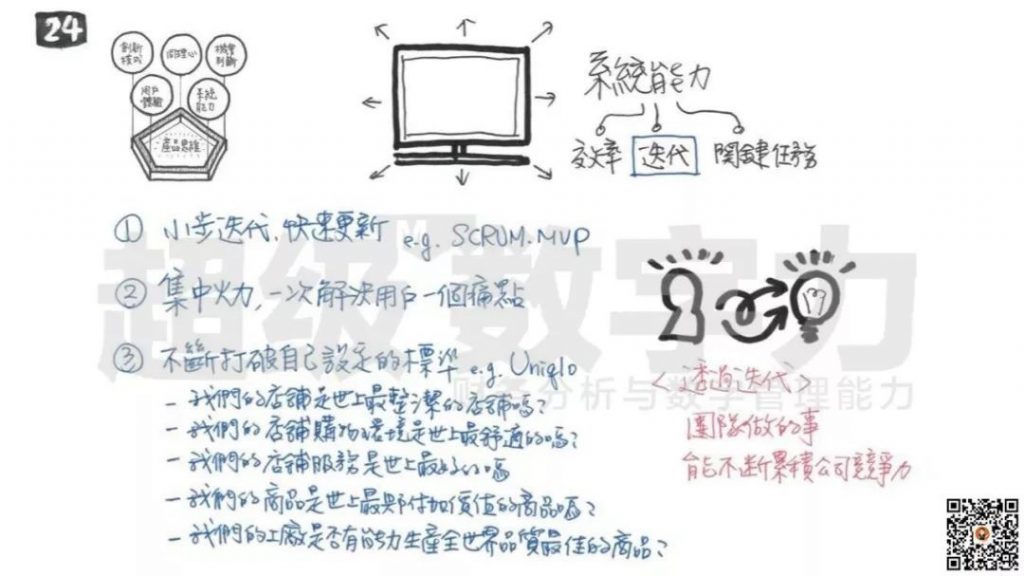 24
創新
模式
同理心
機會
判斷
用戶
體驗
系統
能力
產品思維
系統能力
效率 迭代 關鍵任務
① 小步迭代,快速更新 e.g. SCRUM.MVP
② 集中火力,一次解決用戶一個痛點
③ 不斷打破自己設定的標準 e.g. Uniqlo
- 我們的店鋪是世上最整潔的店鋪嗎?
- 我們的店舖購物環境是世上最舒適的嗎?
- 我們的店舖服務是世上最好的嗎
- 我們的商品是世上最具附加價值的商品嗎?
- 我們的工廠是否有能力生產全世界品質最佳的商品?
<透過迭代>
團隊做的事
能不断累積公司競爭力
超级数字力
财务分析与数字管理能力